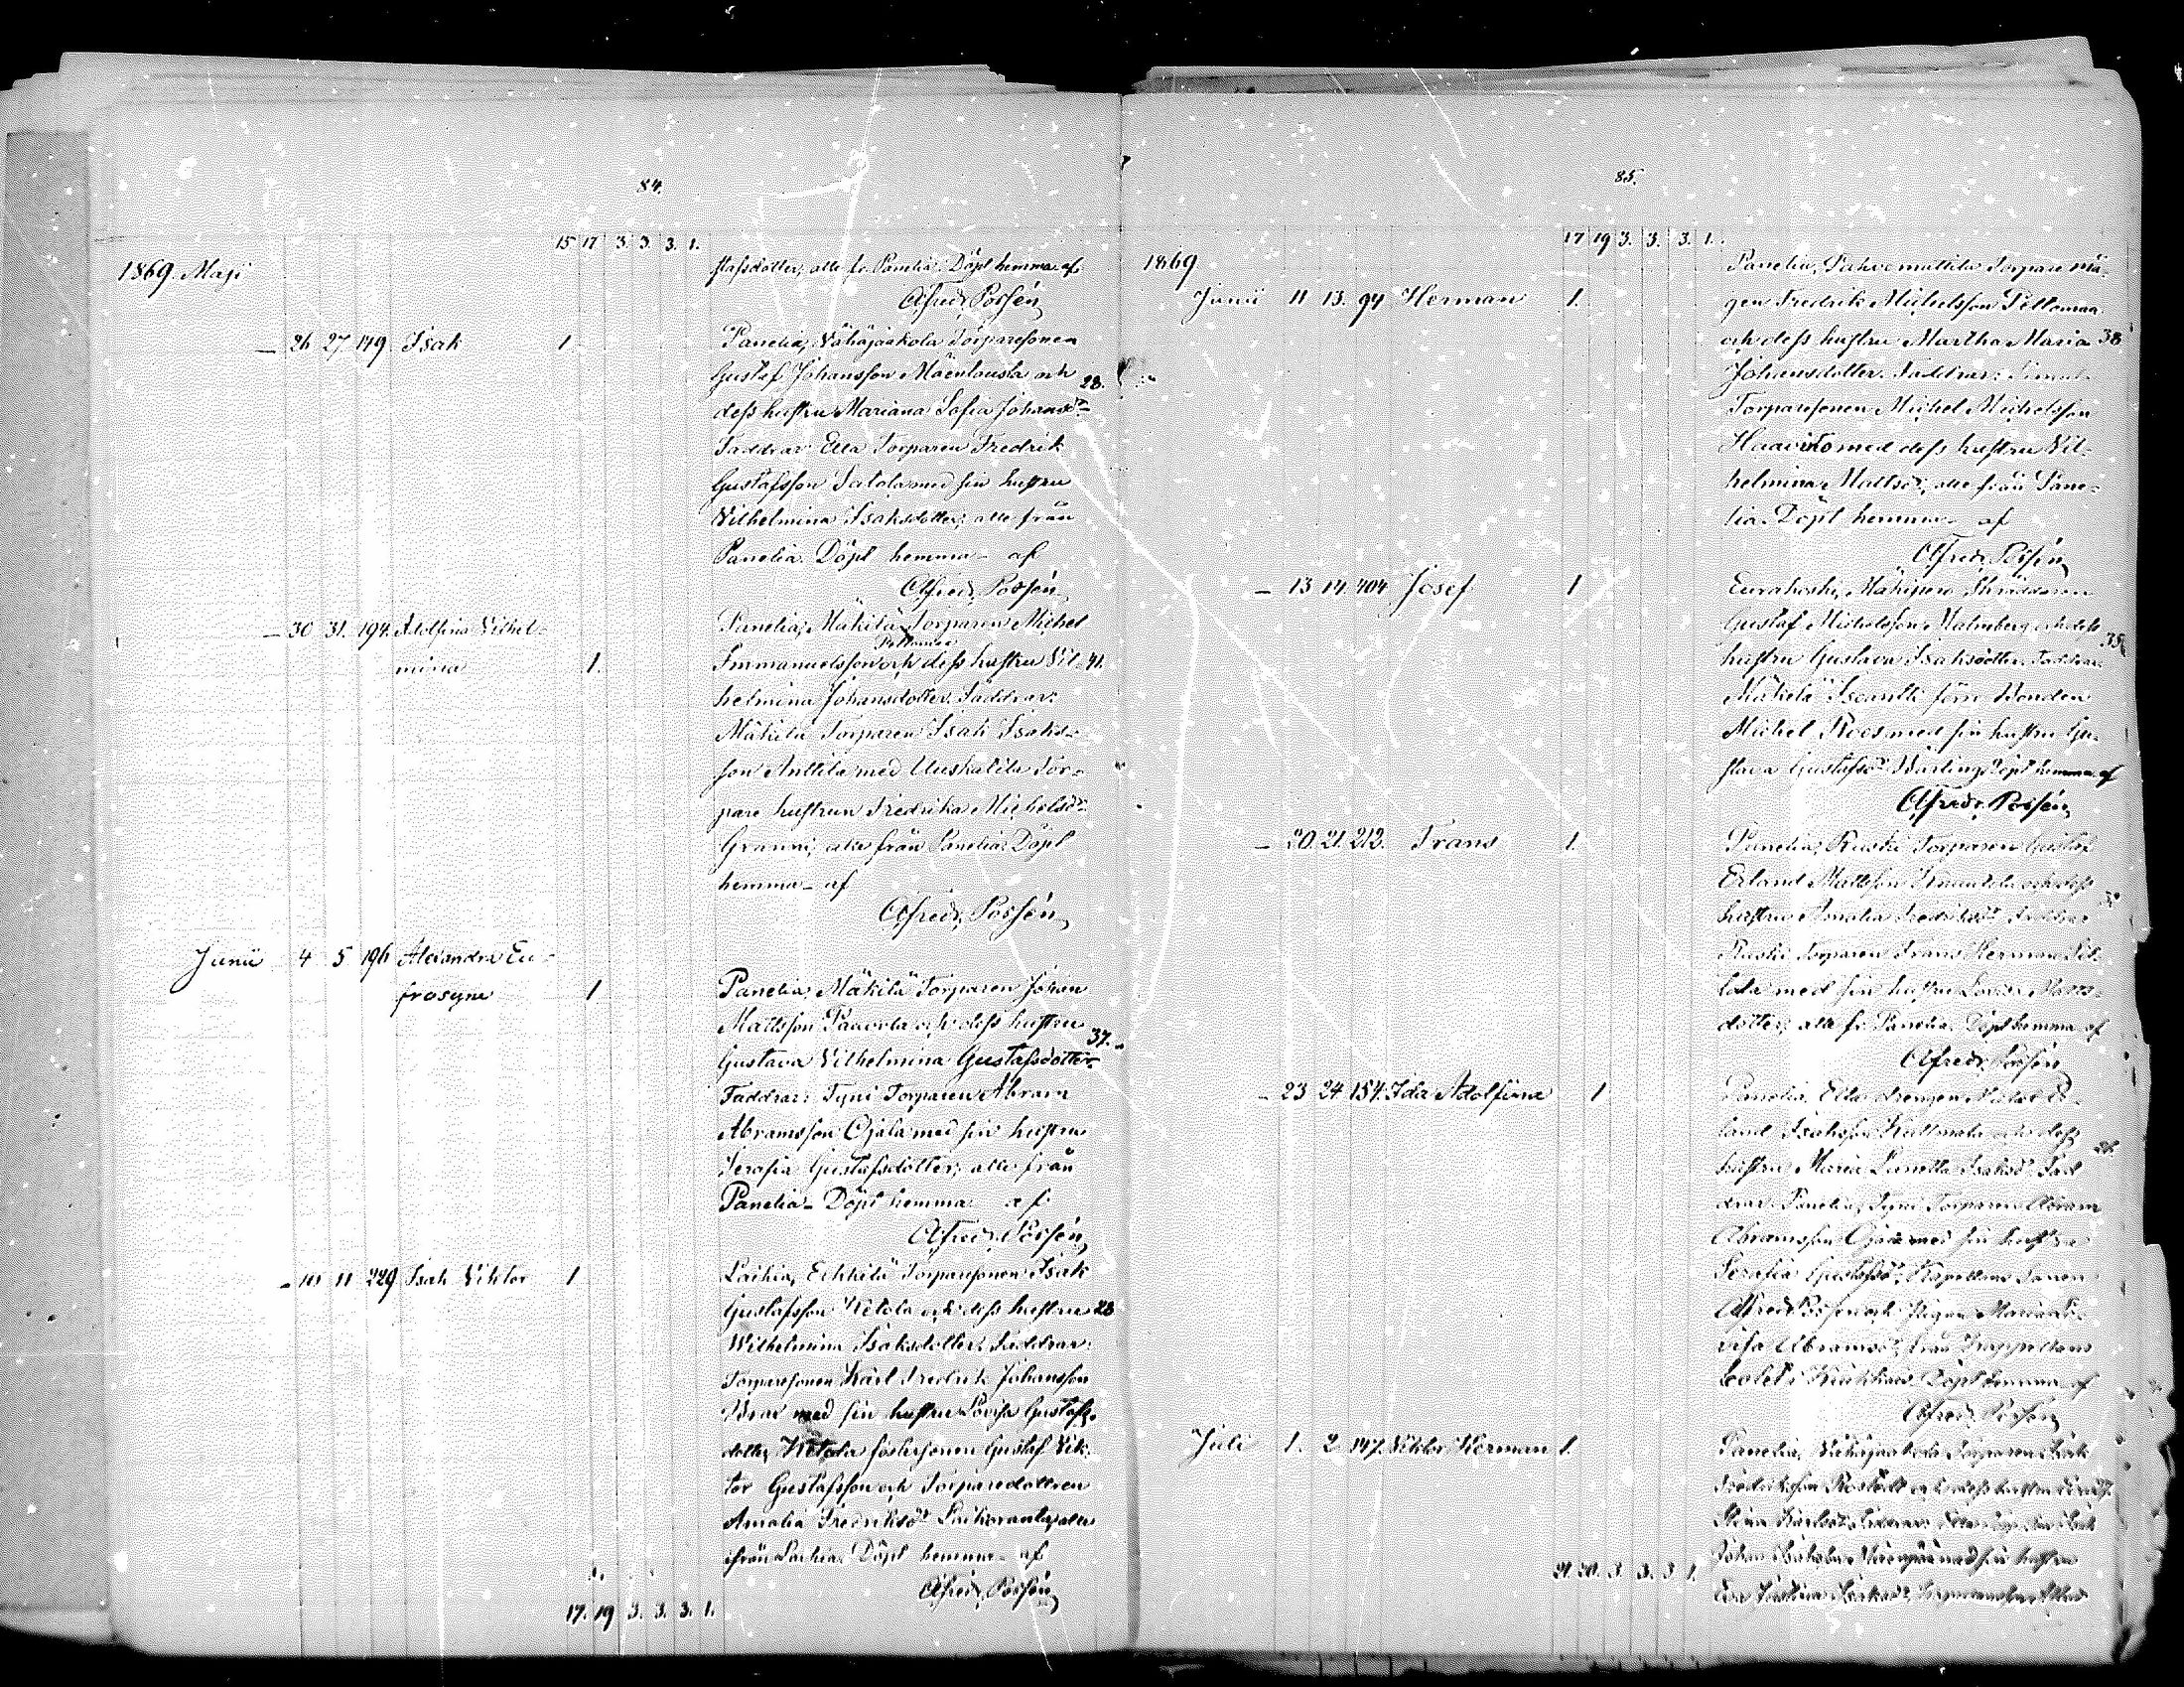 84.
15 17 3. 3. 3. 1.
1869. Maji
stafsdotter; alle fr. Panelia. Döpt hemma af
Alfred Possén
— 26 27. 149 Isak 1
Panelia, Vähäjaakola Torparesonen
Gustaf Johansson Mäenlousta och 28.
dess hustru Mariana Sofia Johansdr
Faddrar: Ella Torparen Fredrik
Gustafsson Satola med sin hustru
Vilhelmina Isaksdotter; alle från
Panelia. Döpt hemma af
Alfred Possén
— 30 31. 194. Adolfina Vilhel-
mina 1.
Panelia, Mäkilä Torparen Michel
Immanuelsson och dess hustru Vil- 41.
helmina Johansdotter. Faddrar:
Mäkilä Torparen Isak Isaks-
son Anttila med Uuskalila Tor-
pare hustrun Fredrika Michelsdr
Granni; alle från Panelia. Döpt
hemma af
Alfred Possén
Junii 4 5 196 Alexandra Eu-
frosyne 1
Panelia, Mäkilä Torparen Johan
Mattsson Paavola och dess hustru 37.
Gustava Vilhelmina Gustafsdotter
Faddrar: Tyni Torparen Abram
Abramsson Ojala med sin hustru
Serafia Gustafsdotter; alle från
Panelia. Döpt hemma af
Alfred Possén
— 10 11 229 Isak Viktor 1
Laihia, Eckkilä Torparesonen Isak
Gustafsson Ketola och dess hustru 28
Wilhelmina Isaksdotter. Faddrar:
Torparesonen Karl Fredrik Johansson
med sin hustru Lovisa Gustafs-
dotter, Ketola fostersonen Gustaf Vik-
tor Gustafsson och Torparedottren
Amalia Fredriksdr alle
ifrån Laihia. Döpt hemma af
Alfred Possén
17. 19 3. 3. 3. 1.
85.
17 19 3. 3. 3. 1.
1869
Junii 11 13. 94 Herman 1.
Panelia, Pahvemattila Torpare må-
gen Fredrik Michelsson Peltomaa
och dess hustru Martha Maria 38
Johansdotter. Faddrar:
Torparesonen Michel Michelsson
Haavisto med dess hustru Vil-
helmina Mattsdr, alle från Pane-
lia. Döpt hemma af
Alfred Possén
— 13 14. 404 Josef 1
Eurakoski, Mähipero Skräddaren
Gustaf Michelsson Malmberg och dess 35
hustru Gustava Isaksdotter. Faddrar:
Bonden
Michel Roos med sin hustru Gu-
stava Gustafsdr döpt hemma af
Alfred Possén
— 20. 21. 212. Frans 1.
Panelia, Ruski Torparen Gustaf
Erland Mattsson och dess
hustru Amalia Fredriksdr Faddrar
Ruski Torparen Frans Herman
med sin hustru Lovisa
dotter; alle fr. Panelia. Döpt hemma af
Alfred Possén
— 23 24 154. Ida Adolfina 1
Panelia, Ella drengen Michel Er-
land Isaksson och dess 26.
hustru Maria Isaksdr Fad
drar: Panelia, Tyni Torparen Abram
Abramsson Ojala med sin hustru
Serafia Gustafsdr, Kapellans Sonen
Alfred Possén och Pigan Maria
Abramsdr från Kapellans
bolet i Kiukkais. Döpt hemma af
Alfred Possén
Juli 1. 2. 147. Viktor Herman 1.
Panelia, Vähäjaakola Torparen Isak
Fredriksson och dess hustru
Johan med sin hustru
21. 20. 3. 3. 3 1.